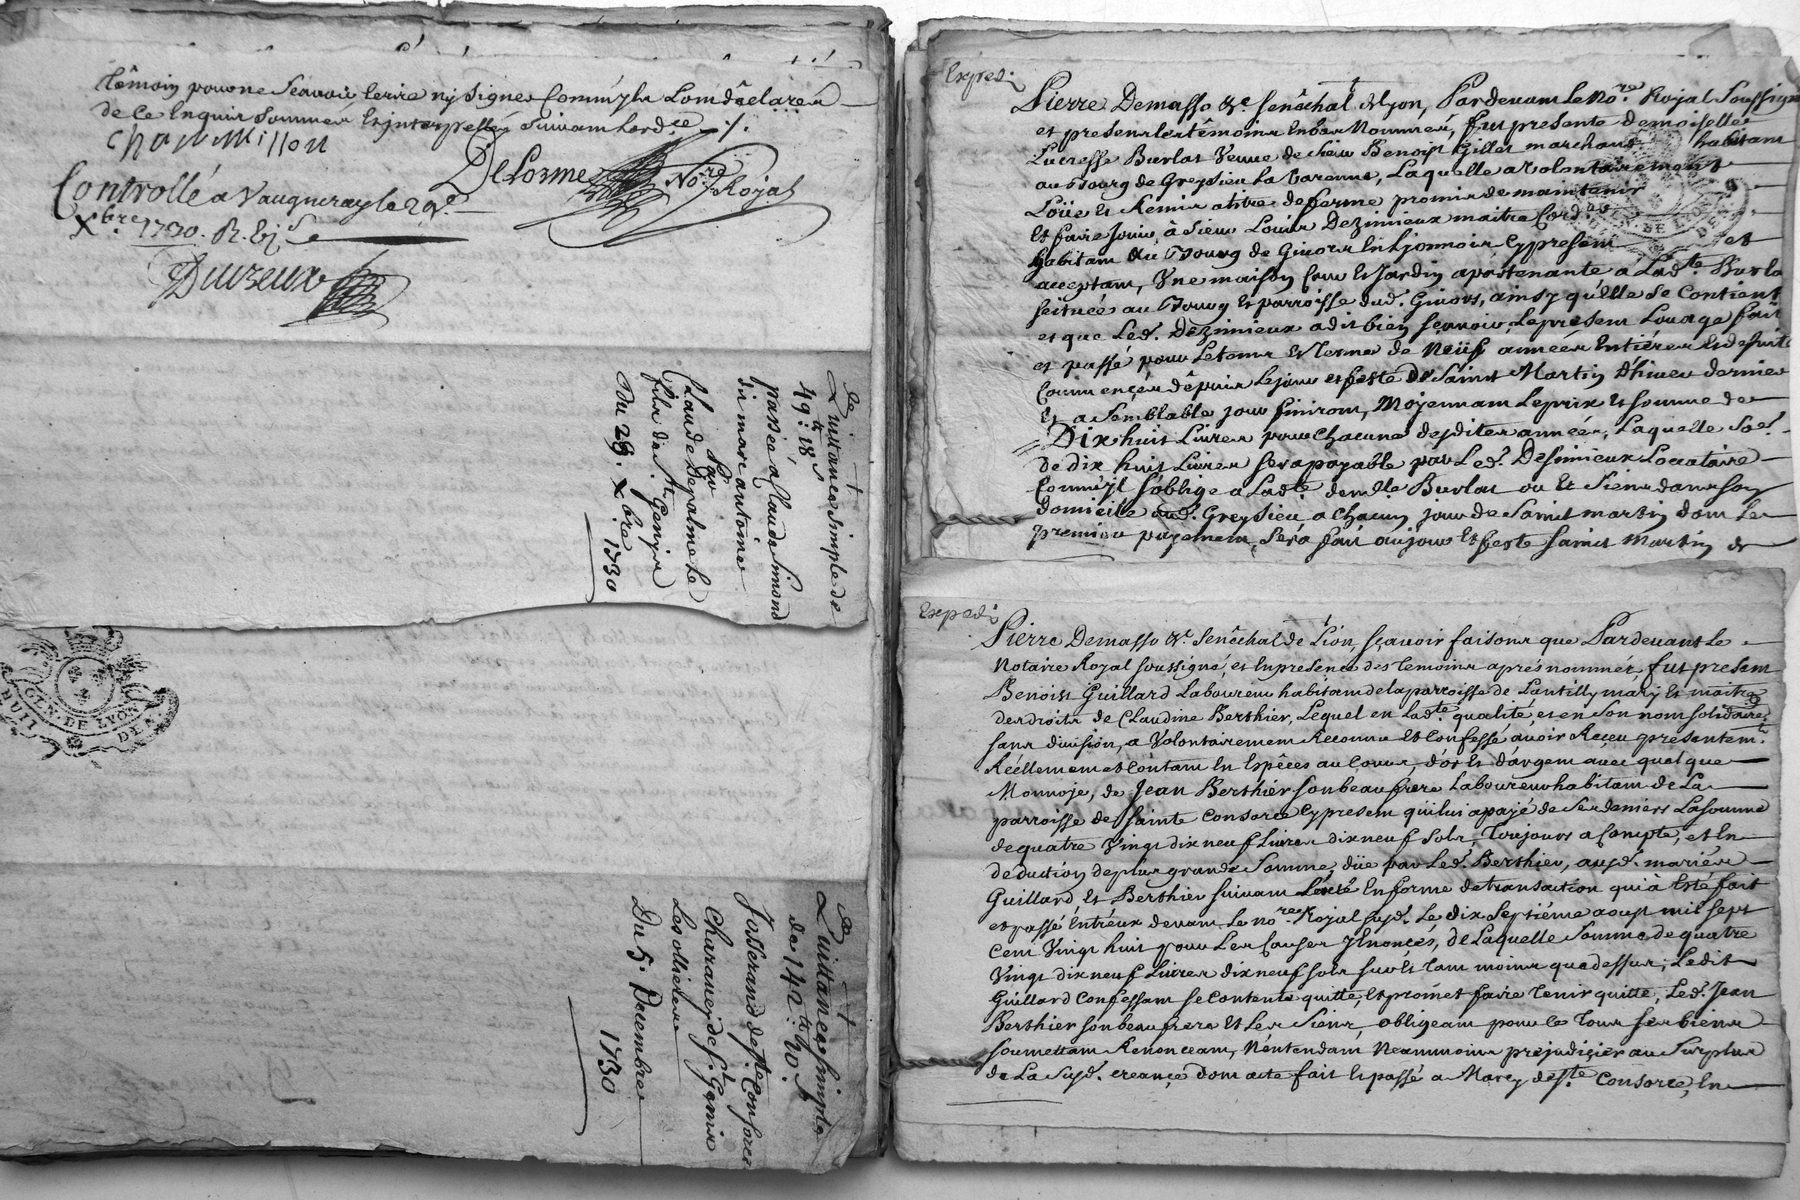 témoin pour ne sçavoir écrire ny signer comm'jls ont déclaré
de ce enquis sommés et jnterpellés suivant l'ord.ce ./.
Chapt Millon
Delorme No.re Royal
Controllé a Vaugneray le 29e.
Xbre 1730. R.
Duvreux
de
Quittance simple de
49tt: 18s
passée a Claude Simond
di marc antoine
par
Claude Depalme le
fils de St. Genix
Du 28. Xbre. 1730
GEN. DE LYON
HUIT DEN.
de
Quittance simple
de 142tt: 10s
Josserand de Ste. Consorce
Charavey de St. Genix
Les ollieres
Du 5. Decembre
1730
Exped:
Pierre Demasso &c. Senêchal de Lyon, Pardevant le No.re Royal soussigné
et presens les témoins en bas nommés, fut presente demoiselle
Lucresse Burlat veuve de sieur Benoist Gillet marchand habitant
au bourg de Greysieu la Varenne, Laquelle a volontairement
Loüé et remis a titre de ferme promis de maintenir
et faire jouir, à sieur Loüis Dezimieux maitre Cord.er
habitant au bourg de Givors en Lyonnois cy present et
acceptant, Une maison cour et jardin apartenante a Lad.te Burla
scituée au bourg et parroisse dud. Givors, ainsy qu'elle se contient
et que Led. Dezimieux a dit bien sçavoir, Le present Louage fait
et passé pour le tems et terme de neuf années entières et de suite
commencées dépuis le jour et feste de Saint Martin d'hiver dernier
et a semblable jour finiront, Moyennant le prix et somme de
Dix huit Livres pour chacune desdites années, Laquelle so.e
de dix huit Livres sera payable par Led. Desimieux Locataire
comm'jl s'oblige a Lad.te dem.lle Burlat ou es siens dans son
domicile aud. Greysieu a chacun jour de Saint martin dont le
premier payement sera fait au jour et feste Saint Martin de
Exped:
Pierre Demasso &c. Senêchal de Lion, sçavoir faisons que Pardevant le
Notaire Royal soussigné, et en presence des temoins après nommés, fut present
Benoist Guillard Laboureur habitant de la parroisse de Lantilly mary et maitre
des droits de Claudine Berthier, Lequel en Lad.te qualité, et en son nom solidaire.t
sans division, a volontairement reconnu et confessé avoir reçeu presentem.t
Réellement et contant en espêces au cours d'or et d'argent avec quelque
Monnoje, de Jean Berthier son beau frere Laboureur habitant de La
parroisse de Sainte Consorce cy present qui lui a payé de ses deniers La somme
de quatre vingt dix neuf Livres dix neuf sols, toujours a compte, et en
deduction de plus grande somme düe par Led. Berthier, ausd. mariés
Guillard, et Berthier suivant l'acte en forme de transaction qui a esté fait
et passé entreux devant le no.re Royal susd. Le dix septiéme aoust mil sept
cent vingt huit pour les causes y enoncés, de Laquelle somme de quatre
Vingt dix neuf Livres dix neuf sols sur et tant moins que dessus; Ledit
Guillard confessant se contente quitte, et promet faire tenir quitte, Led. Jean
Berthier son beau frere et les siens, obligeant pour ce tous ses biens
soumettant Renonceant, N'entendant neammoins prejudicier au surplus
de La susd. creance dont acte fait et passé a Marcy de Ste. Consorce, en